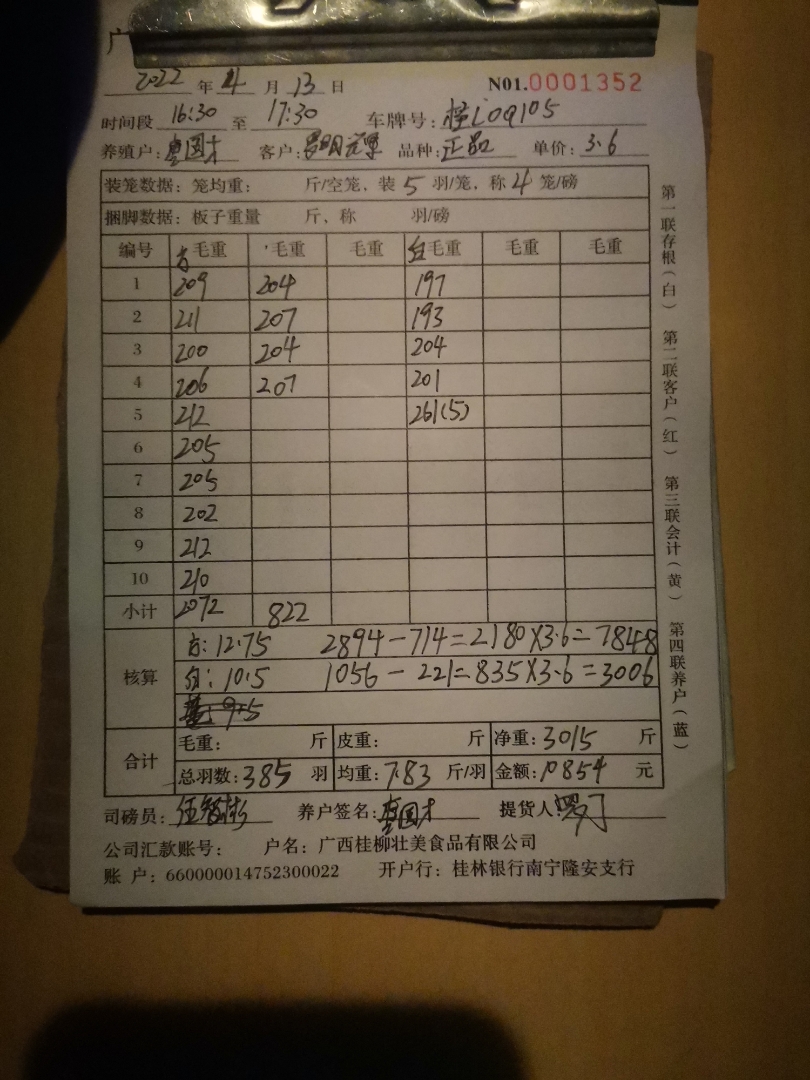 广
2022 年 4 月 13 日 N01.0001352
时间段 16:30 至 17:30 车牌号: 桂L09105
养殖户: 国才 客户: 品种: 正品 单价: 3.6
装笼数据: 笼均重: 斤/空笼、装 5 羽/笼, 称 4 笼/磅
捆脚数据: 板子重量 斤、称 羽/磅
编号 毛重 毛重 毛重 毛重 毛重 毛重
1 209 204 197
2 211 207 193
3 200 204 204
4 206 207 201
5 212 261(5)
6 205
7 205
8 202
9 212
10 210
小计 2072 822
核算 : 12.75 2894-714=2180X3.6=7848
: 10.5 1056-221=835X3.6=3006
9.5
合计 毛重: 斤 皮重: 斤 净重: 3015 斤
总羽数: 385 羽 均重: 7.83 斤/羽 金额: 10854 元
司磅员: 养户签名: 国才 提货人:
公司汇款账号: 户名: 广西桂柳壮美食品有限公司
账 户: 660000014752300022 开户行: 桂林银行南宁隆安支行
第一联存根(白) 第二联客户(红) 第三联会计(黄) 第四联养户(蓝)